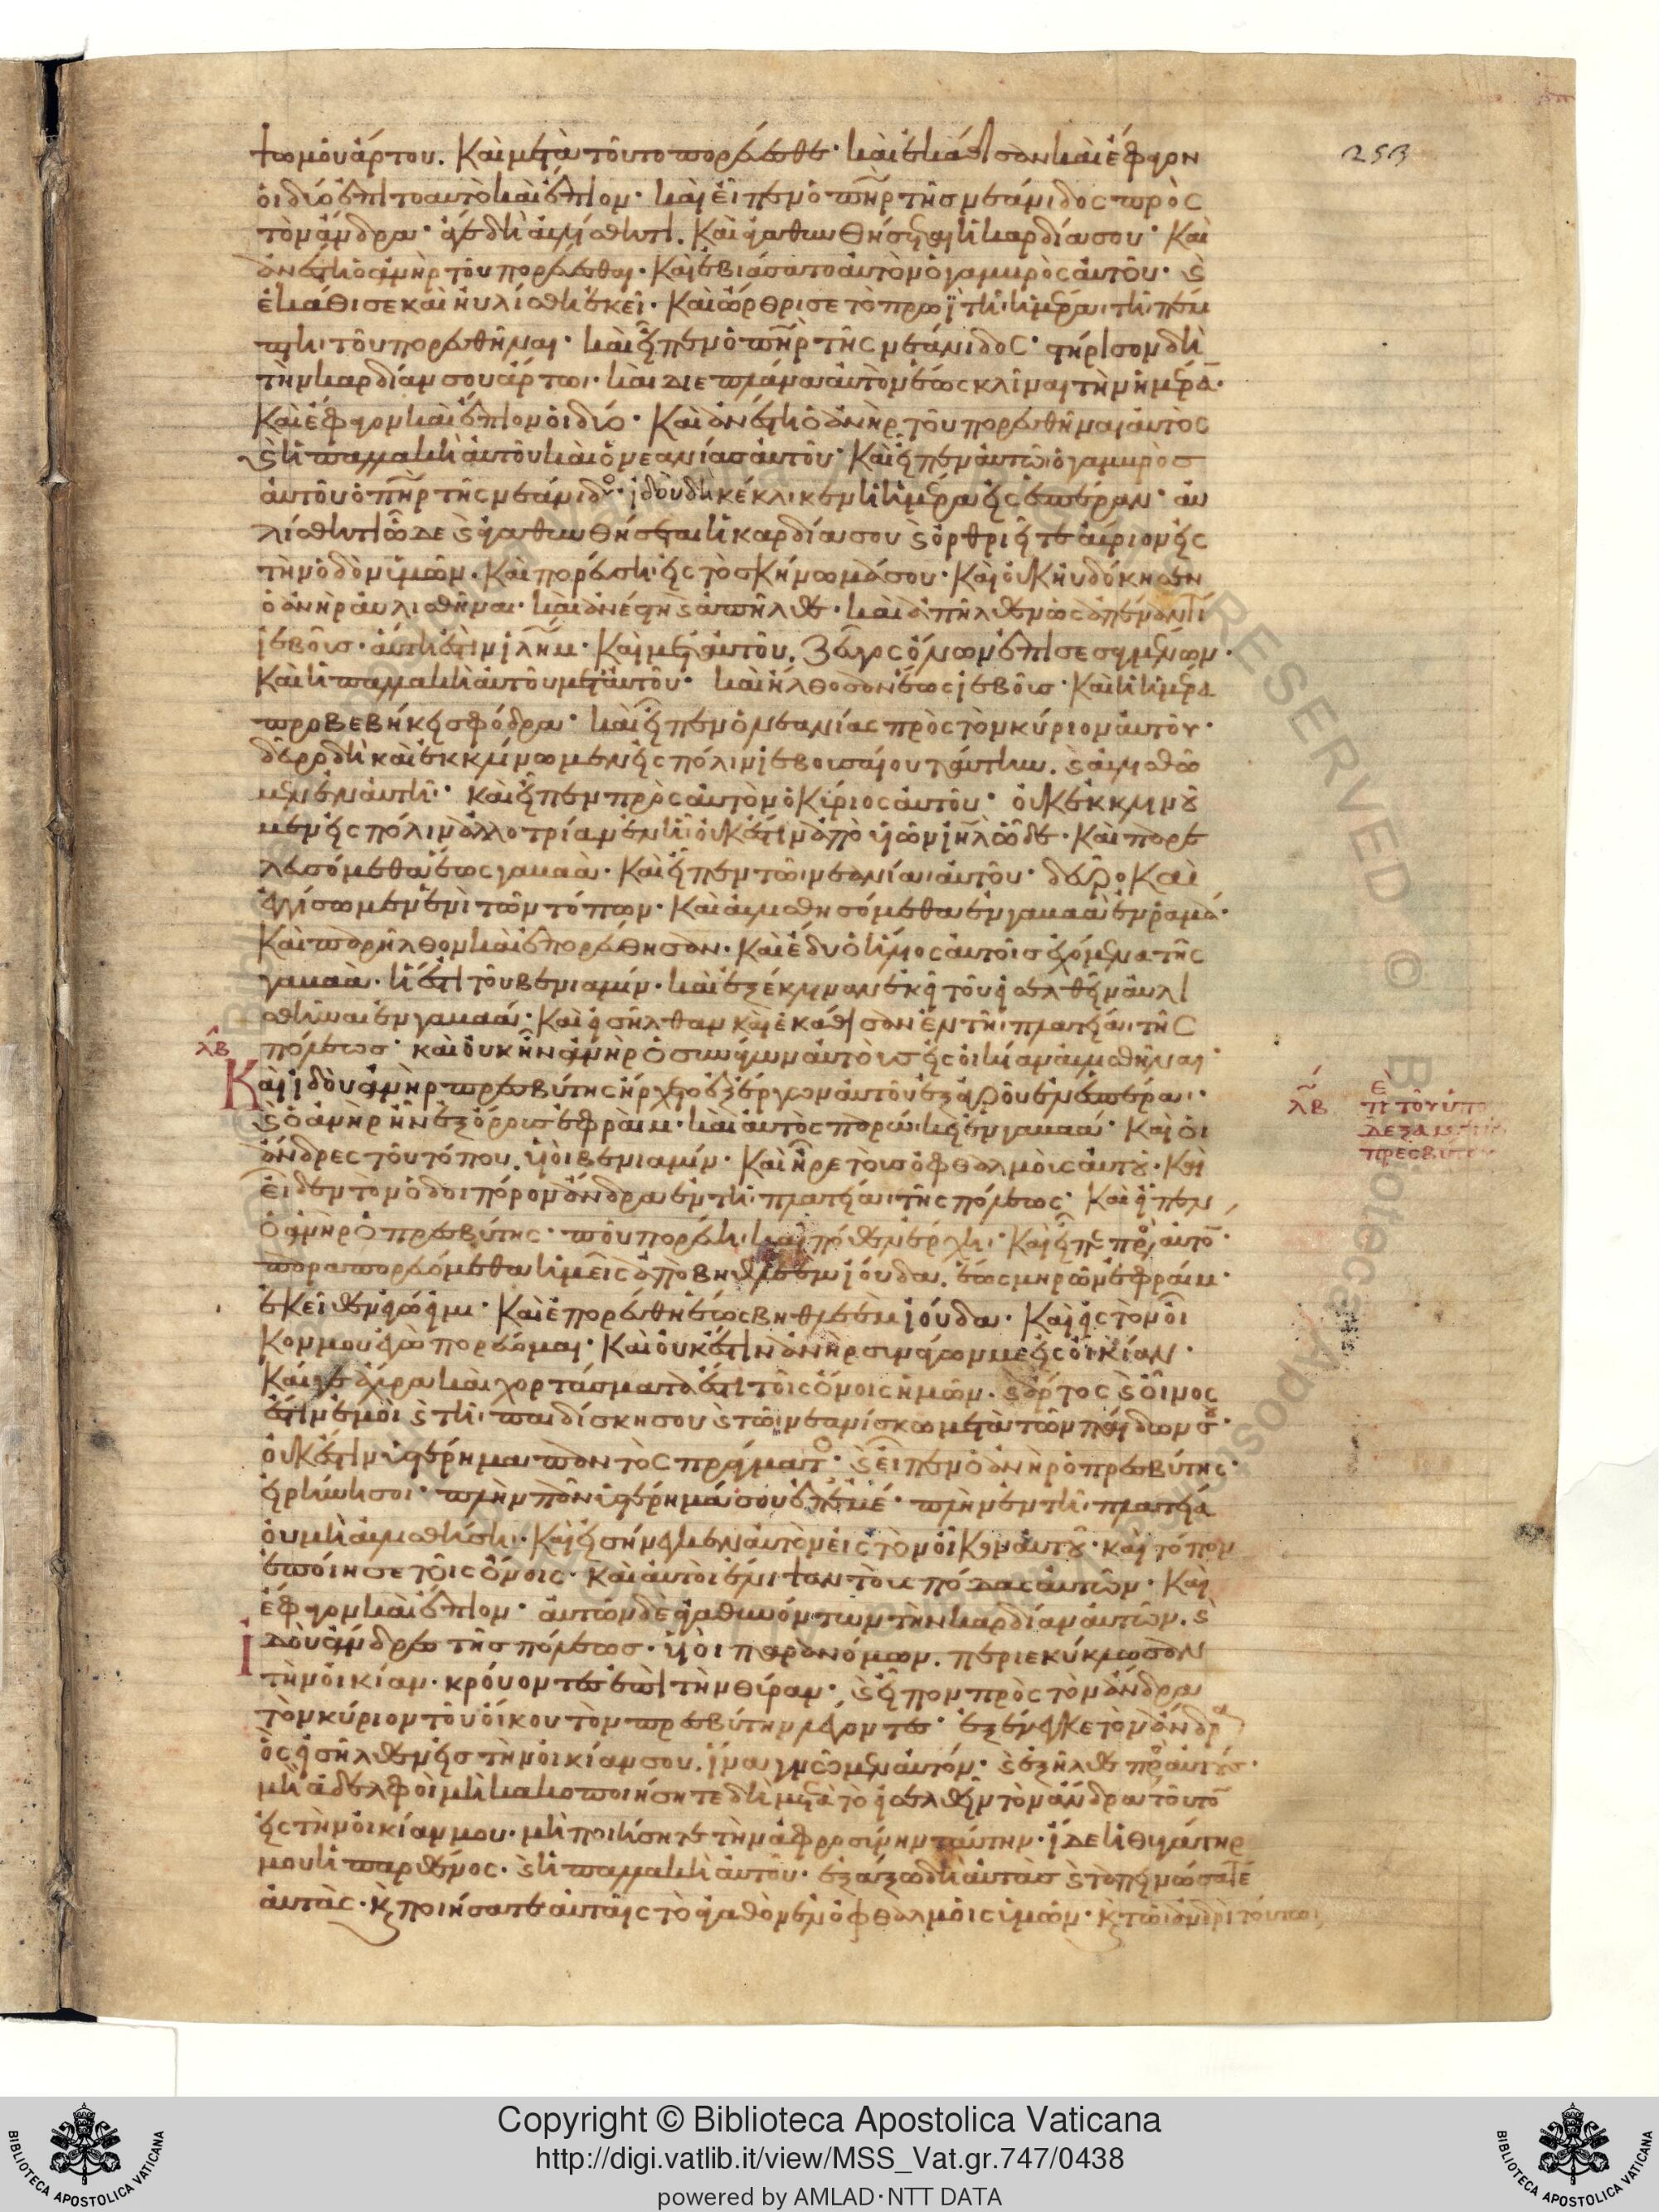 253
ψωμὸν ἄρτου. Καὶ μετὰ τοῦτο πορεύεσθε· καὶ ἐκάθισαν καὶ ἔφαγον
οἱ δύο ἐπιτοαυτὸ καὶ ἔπιον· καὶ εἶπεν ὁ πηρ τῆς νεάνιδος πρὸς
τὸν ἄνδρα· ἄγε δὴ αὐλίσθητι. Καὶ ἀγαθυνθήσεται ἡ καρδία σου· Καὶ
ἀνέστη ὁ ἀνὴρ τοῦ πορεύεσθαι. Καὶ ἐβιάσατο αὐτὸν ὁ γαμβρὸς αὐτοῦ· ϛ
ἐκάθισε καὶ ηὐλίσθη ἐκεῖ. Καὶ ὤρθρισε τὸ πρωῒ τῆ ἡμέρα τῆ πέμ
πτη τοῦ πορευθῆναι· καὶ εἶπεν ὁ πηρ τῆς νεάνιδος· στήρισον δὴ
τὴν καρδίαν σου ἄρτω· καὶ διεπλάνα αὐτὸν ἕως κλῖναι τὴν ἡμέραν·
Καὶ ἔφαγον καὶ ἔπιον οἱ δύο· Καὶ ἀνέστη ὁ ἀνὴρ τοῦ πορευθῆναι αὐτὸς
ϛ ἡ παλλακὴ αὐτοῦ καὶ ὁ νεανίας αὐτοῦ· Καὶ εἶπεν αὐτῶ ὁ γαμβρὸς
αὐτοῦ ὁ πηρ τῆς νεάνιδος· ἰδοὺ δὴ κέκλικεν ἡ ἡμέρα εἰς ἑσπέραν· αὐ
λίσθητι ὧδε ϛ ἀγαθυνθήσεται ἡ καρδία σου ϛ ὀρθριεῖτε αὔριον εἰς
τὴν ὁδὸν ὑμῶν. Καὶ πορεύση εἰς τὸ σκήνωμά σου· Καὶ οὐκ ηὐδόκησεν
ὁ ἀνὴρ αὐλισθῆναι· καὶ ἀνέστη ϛ ἀπῆλθε· καὶ ἀπῆλθεν ἕως ἀπέναντι
ἰεβοῦς· αὕτη ἐστὶν ἰλημ· Καὶ μετ' αὐτοῦ. ζεῦγος ὄνων ἐπισεσαγμένων·
Καὶ ἡ παλλακὴ αὐτοῦ μετ' αὐτοῦ· καὶ ἤλθοσαν ἕως ἰεβοῦς· Καὶ ἡ ἡμέρα
προβεβήκει σφόδρα· καὶ εἶπεν ὁ νεανίας πρὸς τὸν κύριον αὐτοῦ·
δεῦρο δὴ καὶ ἐκκλίνωμεν εἰς πόλιν ἰεβουσαίου ταύτην. ϛ αὐλισθῶ
μεν ἐν αὐτῆ· καὶ εἶπεν πρὸς αὐτὸν ὁ Κύριος αὐτοῦ· οὐκ ἐκκλινοῦ
μεν εἰς πόλιν ἀλλοτρίαν ἐν ἧ οὐκ ἔστιν ἀπὸ υἱῶν ιηλ ὧδε· Καὶ παρε
λευσόμεθα ἕως γαβαὰ· Καὶ εἶπεν τῶ νεανία αὐτοῦ· δεῦρο Καὶ
ἐγγίσωμεν ἑνὶ τῶν τόπων· Καὶ αὐλισθησόμεθα ἐν γαβαὰ ἐν ῥαμὰ·
Καὶ παρῆλθον καὶ ἐπορεύθησαν· Καὶ ἔδυ ὁ ἥλιος αὐτοῖς ἐχόμενα τῆς
γαβαὰ· ἥ ἐστι τοῦ βενιαμίν· καὶ ἐξέκλιναν ἐκεῖ τοῦ εἰσελθεῖν αὐλι
σθῆναι ἐν γαβαὰ· Καὶ εἰσῆλθαν καὶ ἐκάθισαν ἐν τῆ πλατεία τῆς
λβ
πόλεως· καὶ οὐκ ἦν ἀνὴρ ὁ συνάγων αὐτοὺς εἰς οἰκίαν αὐλισθῆναι·
Καὶ ἰδοὺ ἀνὴρ πρεσβύτης ἤρχετο ἐξ ἔργων αὐτοῦ ἐξ ἀγροῦ ἐν ἑσπέρα·
λβ
ϛ ὁ ἀνὴρ ἦν ἐξ ὄρους ἐφραΐμ· καὶ αὐτὸς παρώκει ἐν γαβαὰ· Καὶ οἱ
ἄνδρες τοῦ τόπου. υἱοὶ βενιαμίν· Καὶ ἦρε τοὺς ὀφθαλμοὺς αὐτοῦ· Καὶ
εἶδεν τὸν ὁδοιπόρον ἄνδρα ἐν τῆ πλατεία τῆς πόλεως· Καὶ εἶπεν
ὁ ἀνὴρ ὁ πρεσβύτης· ποῦ πορεύη καὶ πόθεν ἔρχη· Καὶ εἶπε πρὸς αὐτόν·
παραπορευόμεθα ἡμεῖς ἀπὸ βηθλεὲμ ἰούδα. ἕως μηρῶν ἐφραΐμ·
ἐκεῖθεν ἐγώ εἰμι· Καὶ ἐπορεύθην ἕως βηθλεὲμ ἰούδα· Καὶ εἰς τὸν οἶ
κόν μου ἐγὼ πορεύομαι· Καὶ οὐκ ἔστιν ἀνὴρ συνάγων με εἰς οἰκίαν·
Καί γε ἄχυρα καὶ χορτάσματά ἐστι τοῖς ὄνοις ἡμῶν. ϛ ἄρτος ϛ οἶνος
ἐστιν ἐμοὶ ϛ τῆ παιδίσκη σου ϛ τῶ νεανίσκω μετὰ τῶν παίδων σου·
οὐκ ἔστιν ὑστέρημα παντὸς πράγματος· ϛ εἶπεν ὁ ἀνὴρ ὁ πρεσβύτης·
εἰρήνη σοι· πλὴν πᾶν ὑστέρημά σου ἐπ' ἐμέ· πλὴν ἐν τῆ πλατεία
οὐ μὴ αὐλισθήση· Καὶ εἰσήγαγεν αὐτὸν εἰς τὸν οἶκον αὐτοῦ· καὶ τόπον
ἐποίησε τοῖς ὄνοις· Καὶ αὐτοὶ ἐνίψαν τοὺς πόδας αὐτῶν· Καὶ
ἔφαγον καὶ ἔπιον· αὐτῶν δὲ ἀγαθυνόντων τὴν καρδίαν αὐτῶν. ϛ
ἰδοὺ ἄνδρες τῆς πόλεως· υἱοὶ παρανόμων. περιεκύκλωσαν
τὴν οἰκίαν· κρούοντες ἐπὶ τὴν θύραν· ϛ εἶπον πρὸς τὸν ἄνδρα
τὸν κύριον τοῦ οἴκου τὸν πρεσβύτην λέγοντες· ἐξένεγκε τὸν ἄνδρα
ὃς εἰσῆλθεν εἰς τὴν οἰκίαν σου. ἵνα γνῶμεν αὐτόν· ϛ ἐξῆλθε πρὸς αὐτοὺς·
μὴ ἀδελφοὶ μὴ κακοποιήσητε δὴ μετὰ τὸ εἰσελθεῖν τὸν ἄνδρα τοῦτον
εἰς τὴν οἰκίαν μου· μὴ ποιήσητε τὴν ἀφροσύνην ταύτην· ἴδε ἡ θυγάτηρ
μου ἡ παρθένος· ϛ ἡ παλλακὴ αὐτοῦ· ἐξάξω δὴ αὐτὰς ϛ ταπεινώσατε
αὐτὰς· κ ποιήσατε αὐταῖς τὸ ἀγαθὸν ἐν ὀφθαλμοῖς ὑμῶν· κ τῶ ἀνδρὶ τούτω
Copyright © Biblioteca Apostolica Vaticana
http://digi.vatlib.it/view/MSS_Vat.gr.747/0438
powered by AMLAD·NTT DATA
BIBLIOTECA APOSTOLICA VATICANA
BIBLIOTECA APOSTOLICA VATICANA